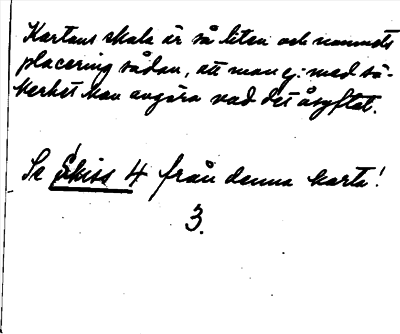 Kartans skala är så liten och namnets
placering sådan, att man ej med sä-
kerhet kan avgöra vad det åsyftat.
Se Skiss 4 från denna karta!
3.